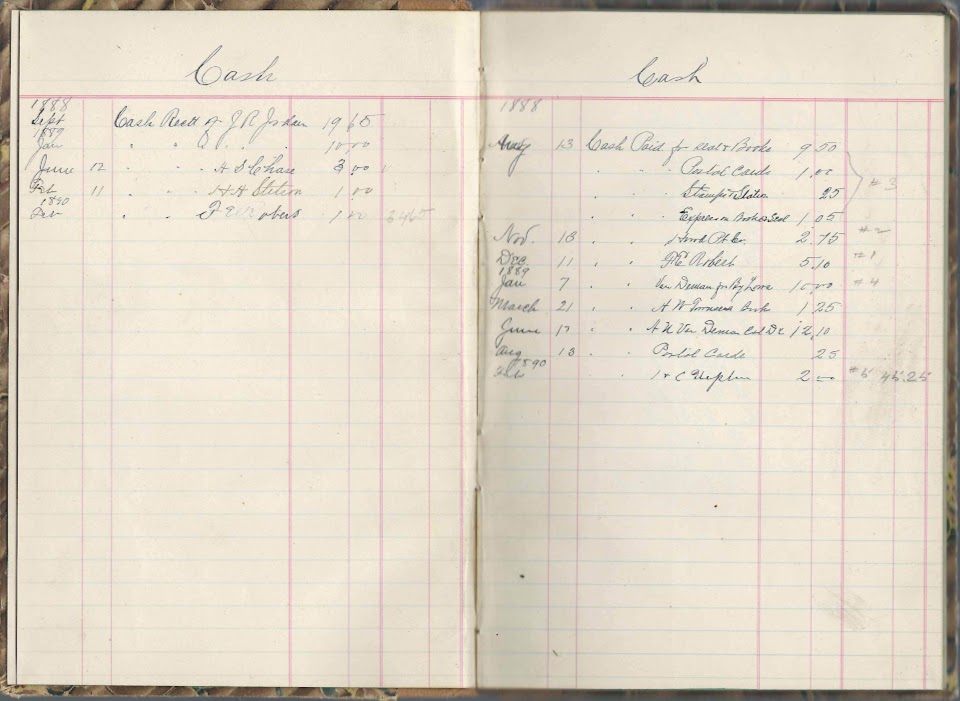 Cash
1888
Sept Cash Rec'd of J R Jordan 19 65
1889
Jan " " " 10 00
June 12 " " " H S Chase 3 00
Feb 11 " " " H H Stetson 1 00
1890
Feb " " F E Roberts 1 00 34 65
Cash
1888
Aug 13 Cash Paid for Seal & Books 9 50
" " Postal Cards 1.00
" " Stamps & Station 25 #3
" " Express on Books & Seal 1.05
Nov. 13 " " 2.75 #2
Dec. 11 " " F E Robert 5.10 #1
1889
Jan 7 " " Van Deman for 10 00 #4
March 21 " " A W Book 1 25
June 17 " " A N Van Deman 12.10
Aug 13 " " Postal Cards 25
1890
Feb " 2 00 #5 45.25